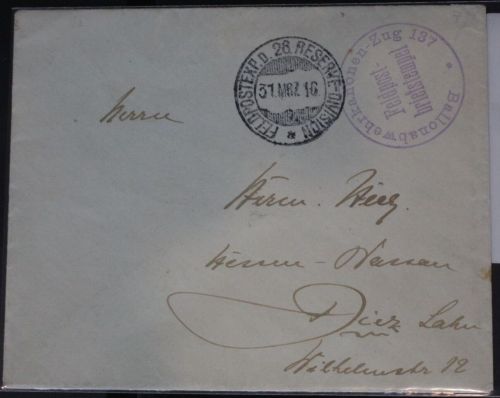 FELDPOSTEXP. D. 26. RESERVE-DIVISION *
31.MRZ 16
Ballonabwehrkanonen-Zug 137 *
Feldpost-
briefstempel
Herrn
Herm.
Hessen-Nassau
Diez Lahn
Wilhelmstr 12